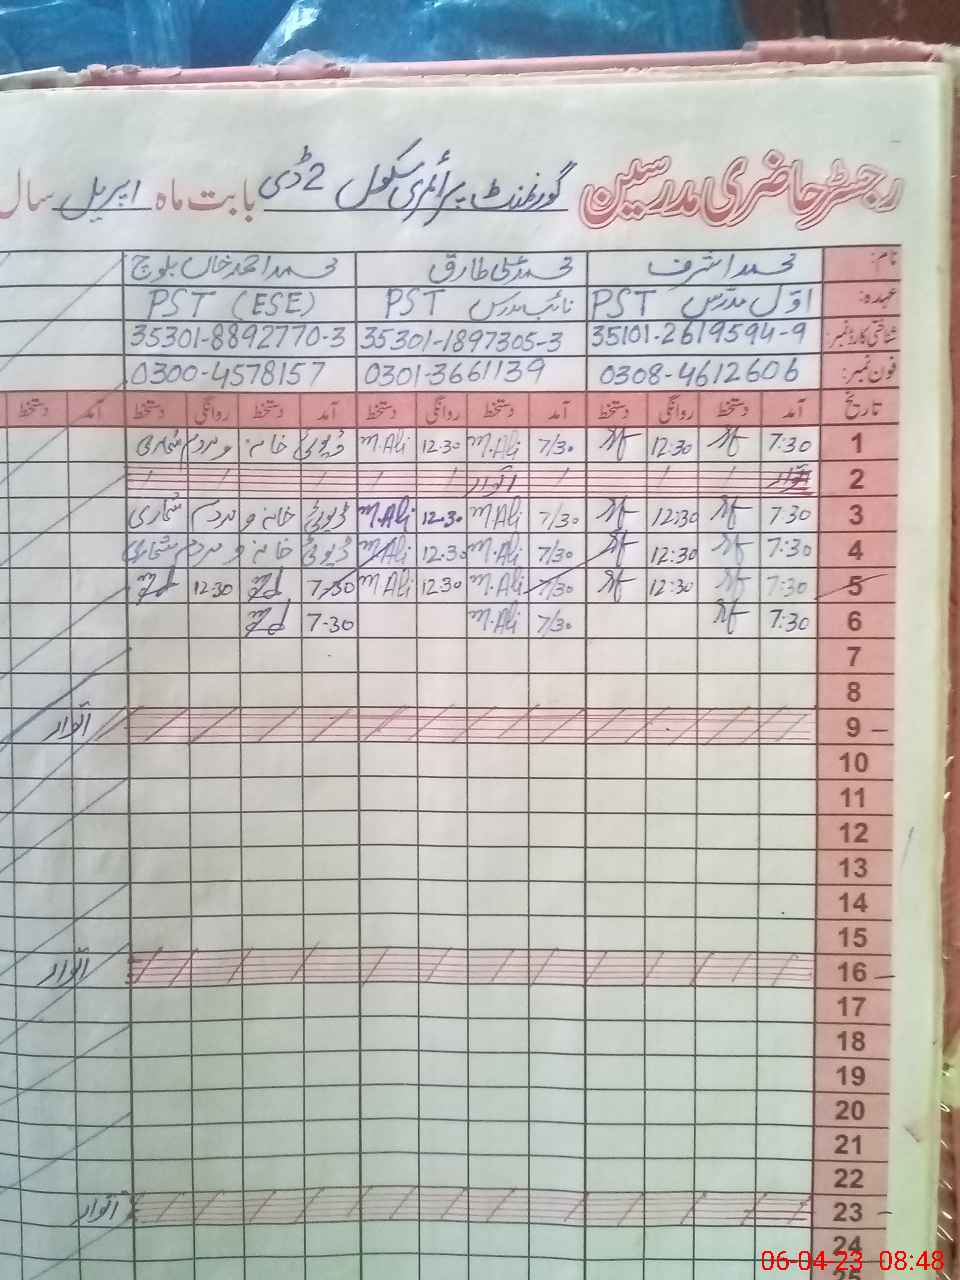 رجسٹر حاضری مدرسین گورنمنٹ پرائمری سکول 2 ڈی بابت ماہ اپریل سال
نام: محمد اشرف محمد علی طارق محمد احمد خان بلوچ
عہدہ: اوّل مدرس PST نائب مدرس PST PST (ESE)
شناختی کارڈ نمبر: 35101-2619594-9 35301-1897305-3 35301-8892770-3
فون نمبر: 0308-4612606 0301-3661139 0300-4578157
تاریخ آمد دستخط روانگی دستخط آمد دستخط روانگی دستخط آمد دستخط روانگی دستخط آمد دستخط
1 7:30 12:30 7/30 M.Ali 12.30 M.Ali ڈیوٹی خانہ و مردم شماری
2 اتوار اتوار
3 7:30 12:30 7/30 M.Ali 12.30 M.Ali ڈیوٹی خانہ و مردم شماری
4 7:30 12:30 7/30 M.Ali 12.30 M.Ali ڈیوٹی خانہ و مردم شماری
5 7:30 12:30 7/30 M.Ali 12.30 M.Ali 7-30 12.30
6 7:30 7/30 M.Ali 7-30
7
8
9 اتوار
10
11
12
13
14
15
16 اتوار
17
18
19
20
21
22
23 اتوار
24
25
06-04-23 08:48